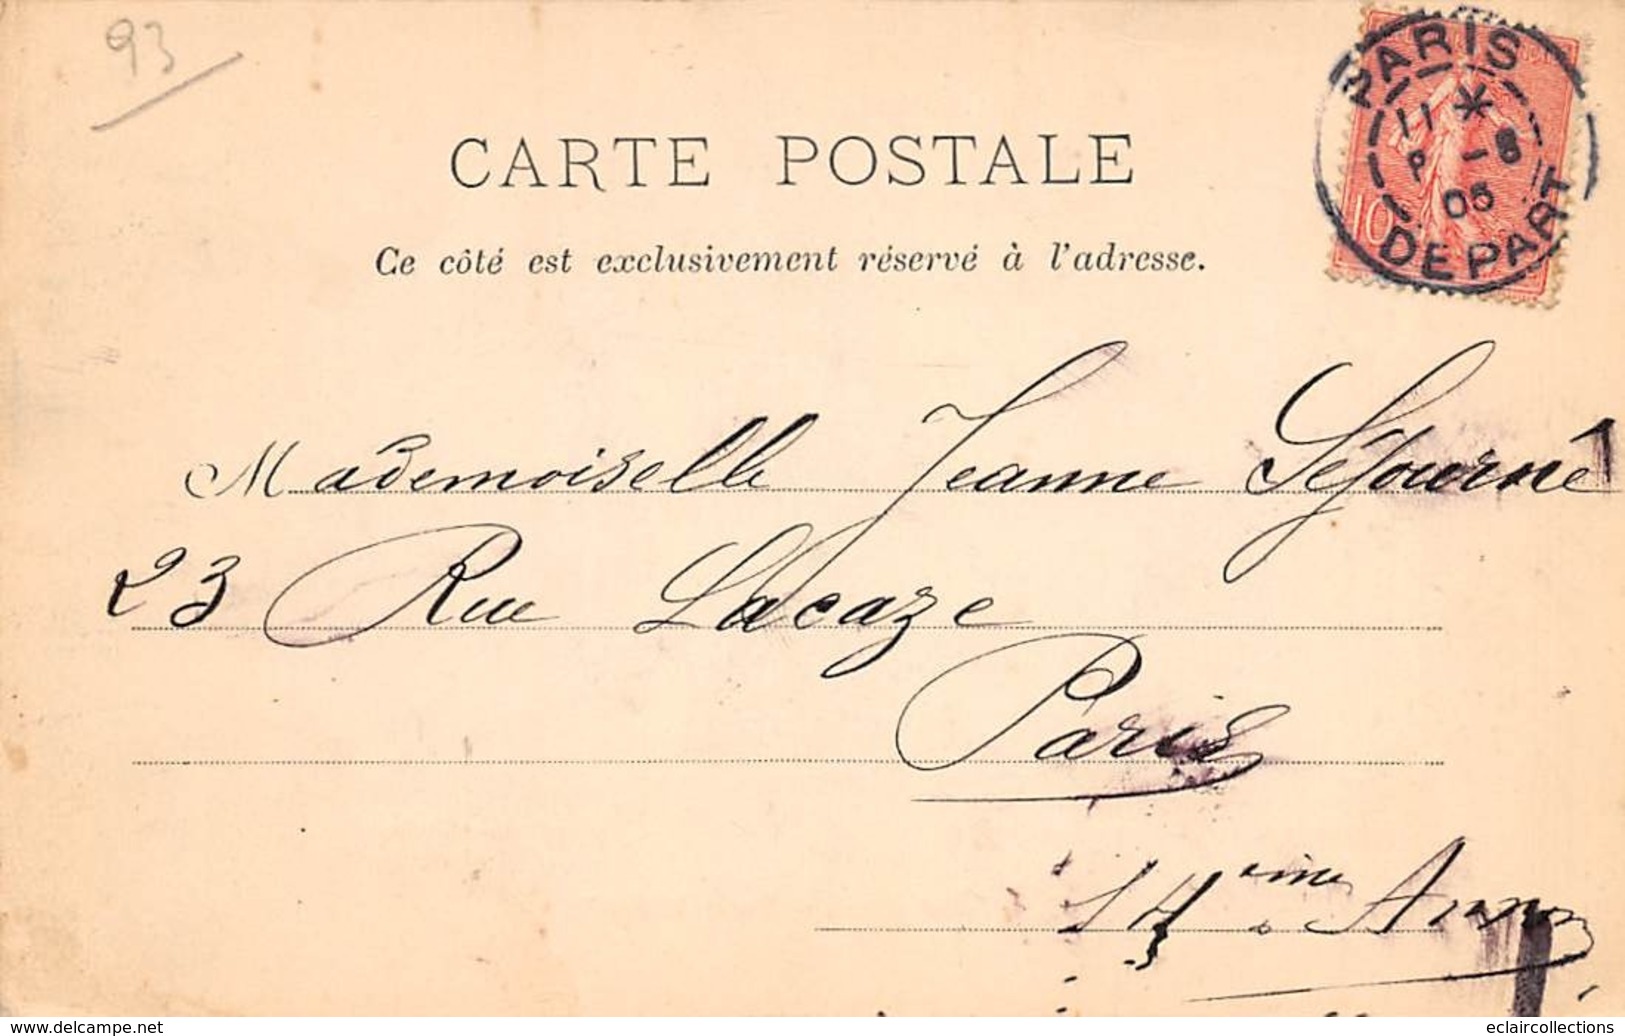 93
CARTE POSTALE
Ce côté est exclusivement réservé à l'adresse.
PARIS
11 * 
P -8
05
DEPART
10
Mademoiselle Jeanne Séjourné
23 Rue Lacaze
Paris
14ème Arron
eclaircollections
www.delcampe.net